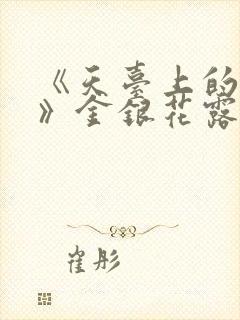 《天臺上的
》金銀花露
崔彤